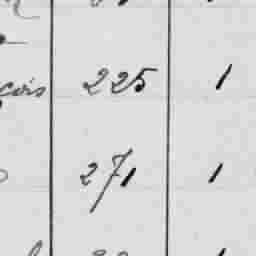 çois 225 1
271 1